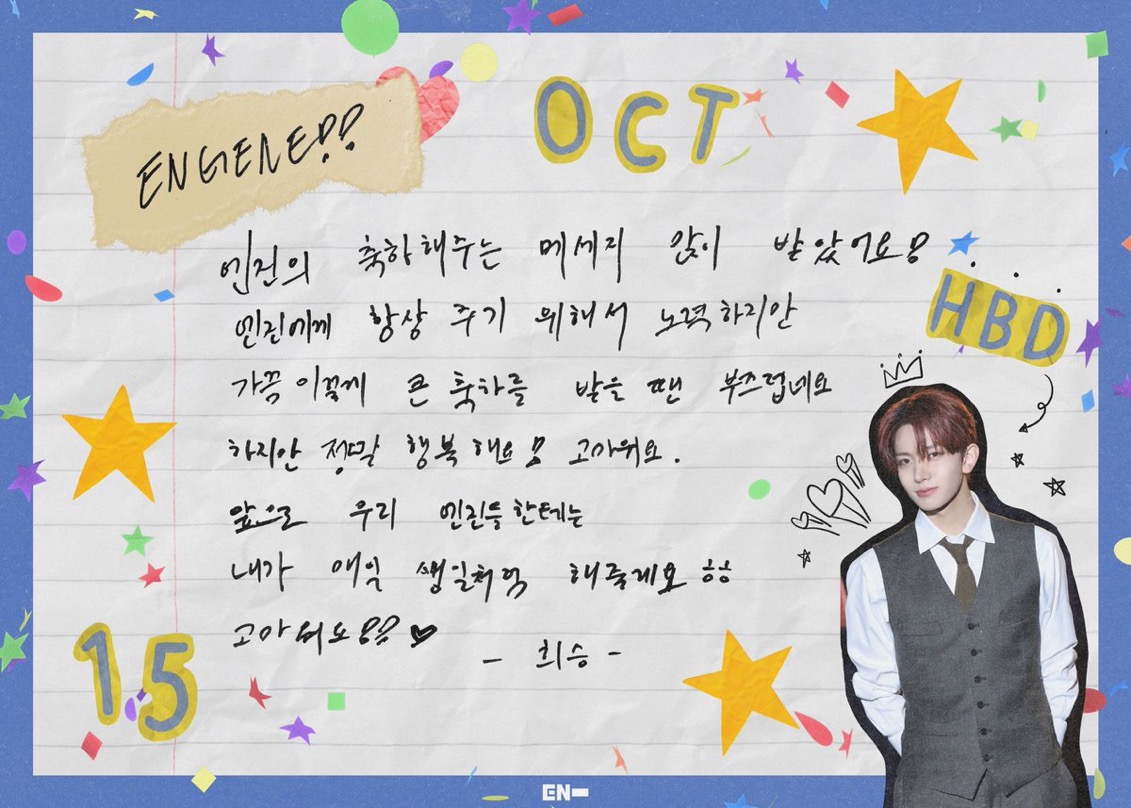 ENGENE!!
OCT
엔진의 축하해주는 메세지 많이 받았어요!
엔진에게 항상 주기 위해서 노력하지만
가끔 이렇게 큰 축하를 받을 땐 부끄럽네요
하지만 정말 행복해요! 고마워요.
앞으로 우리 엔진들한테는
내가 매일 생일처럼 해줄게요 ㅎㅎ
고마워요!! ♥
- 희승 -
HBD
15
EN-